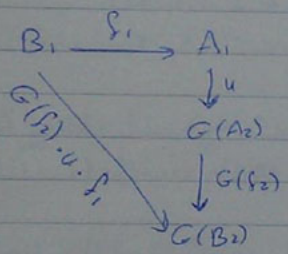 f₁
B₁ A₁
u
G(A₂)
G(f₂)
G(f₂) · u · f₁
G(B₂)